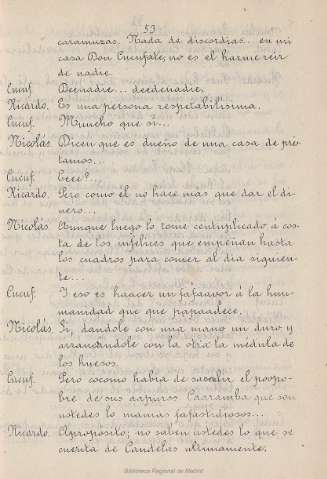 53
caramuzas. Nada de discordias... en mi
casa Don Cucufate; no es el harme reir
de nadie.
Cucuf. Denadie... deedenadie.
Ricardo. Es una persona respetabilísima.
Cucuf. Muncho que sí...
Nicolás. Dicen que es dueño de una casa de pres-
tamos...
Cucuf. Eeee?...
Ricardo. Pero como él no hace mas que dar el di-
nero...
Nicolás. Aunque luego lo tome centuplicado á cos-
ta de los infelices que empeñan hasta
los cuadros para comer al día siguien-
te...
Cucuf. Y eso es haacer un fafaavor á la hu-
manidad que que papaadece.
Nicolás. Si, dandole con una mano un duro y
arrancandole con la otra la médula de
los huesos.
Cucuf. Pero cocomo habia de sacalir el popo-
bre de sus aapuros Caaramba que son
ustedes lo mamas fafastidiosos...
Ricardo. Apropósito; no saben ustedes lo que se
cuenta de Candelas ultimamente.
Biblioteca Regional de Madrid